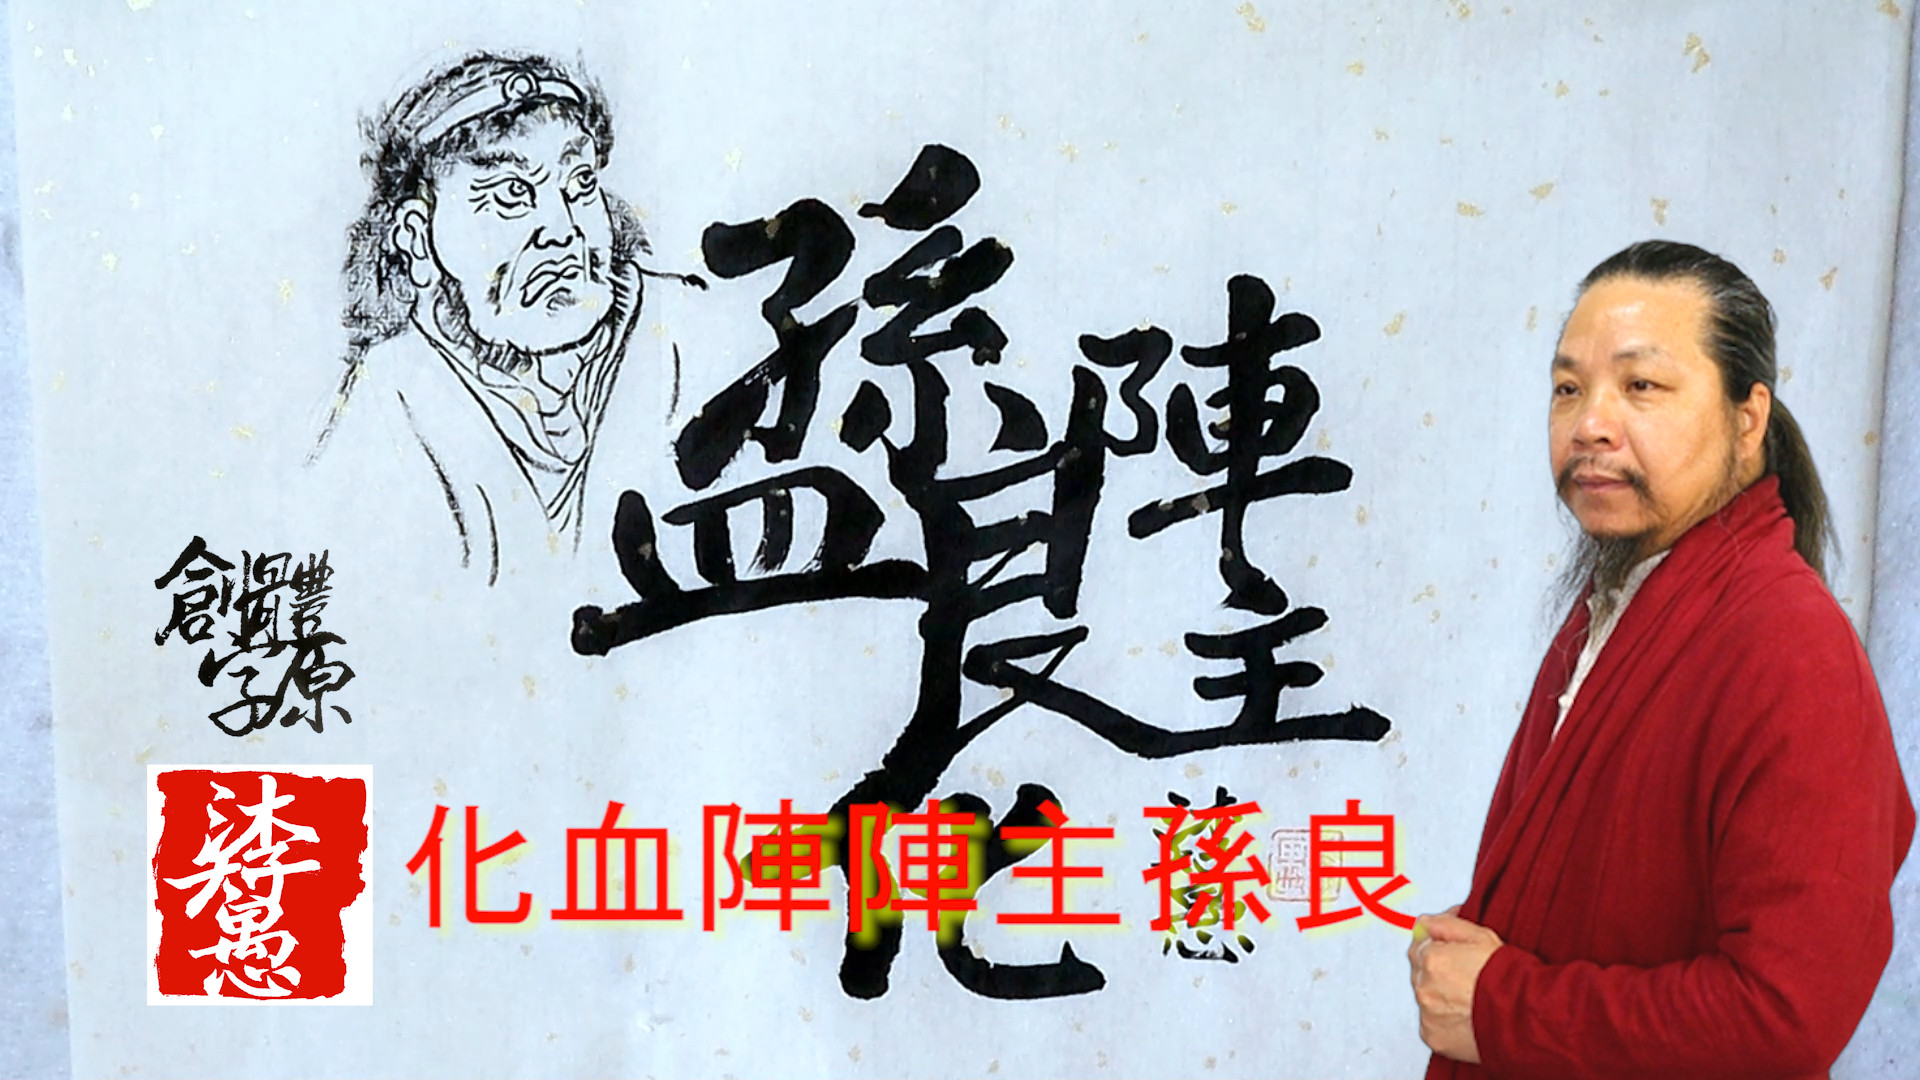 孫 陣
血 良 主
化
創體
字原
化血陣陣主孫良